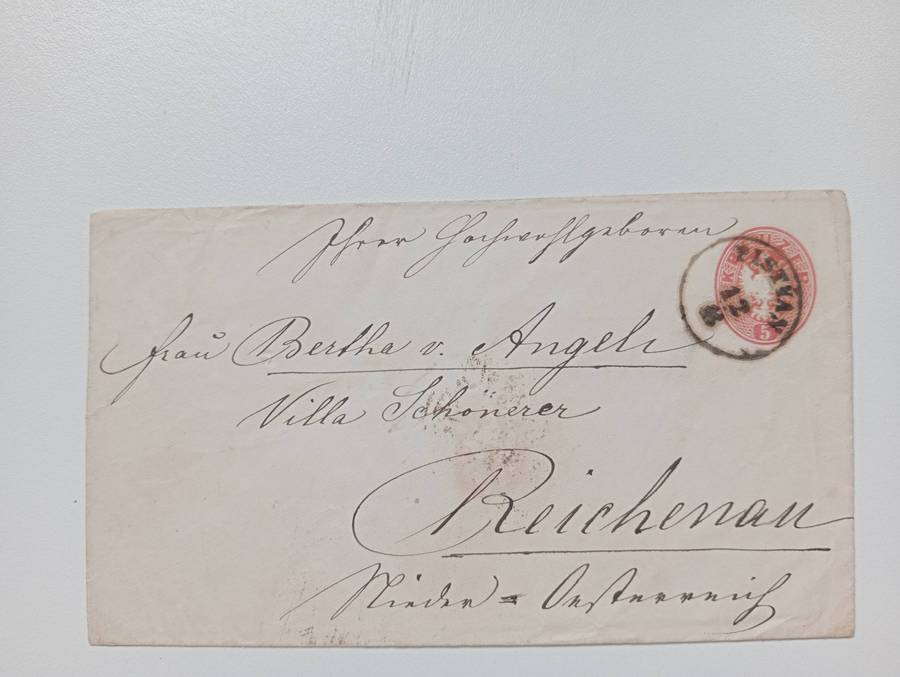 Ihrer Hochwohlgeboren
Frau Bertha v. Angeli
Villa Schönerer
Reichenau
Nieder-Oesterreich
KREUZER
5
12
8